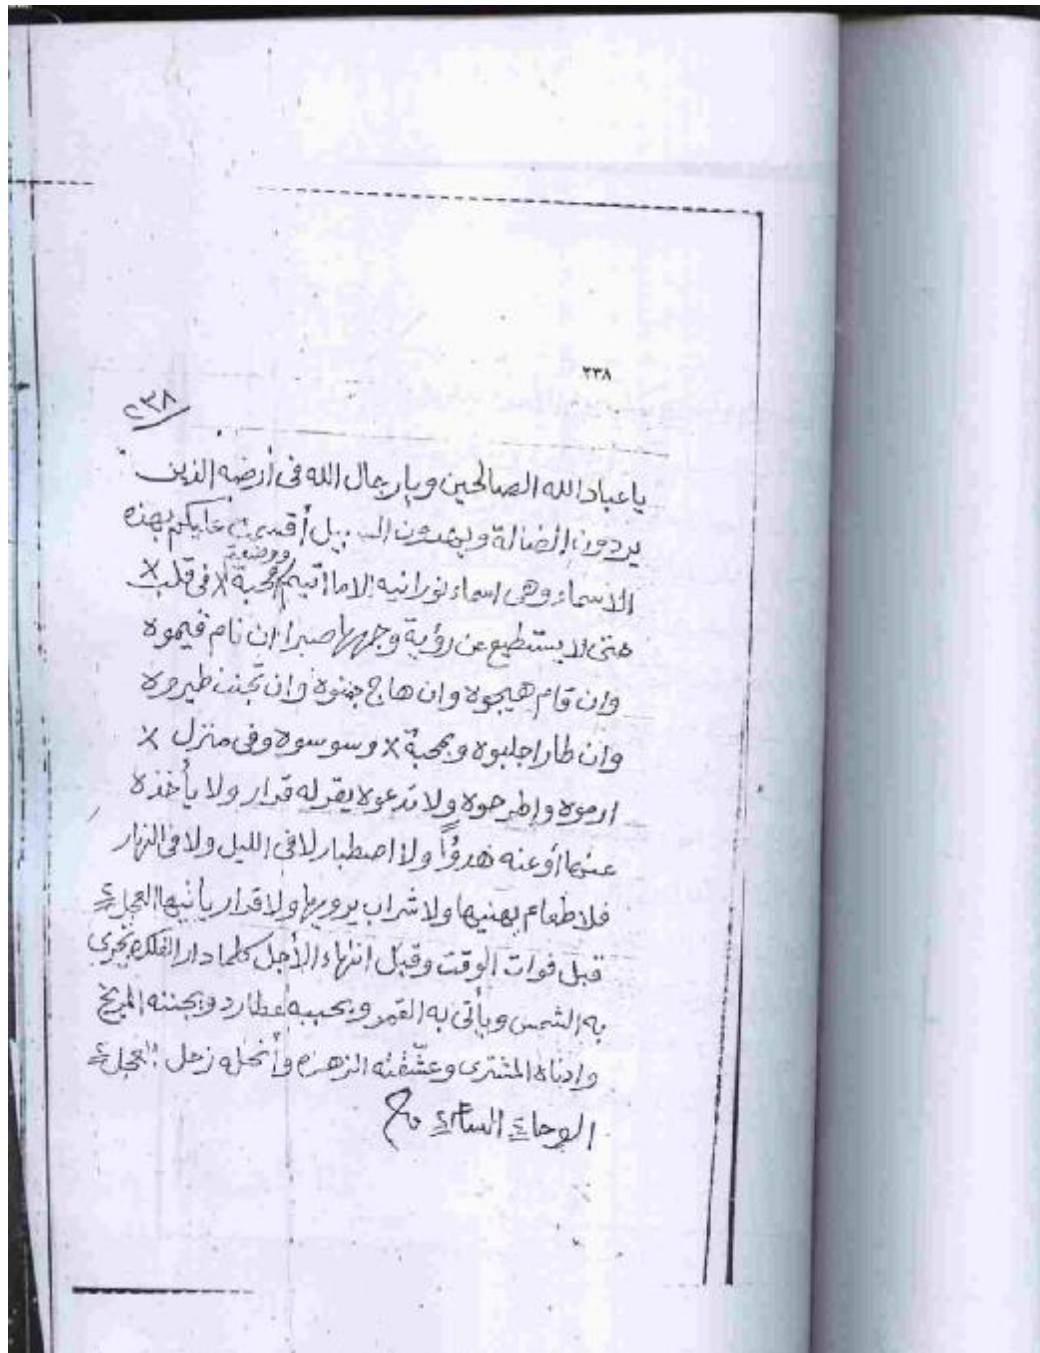 ٢٣٨
٢٣٨
يا عباد الله الصالحين ويا رجال الله فى أرضه الذين
يردون الضالة ويهدون السبيل أقسمت عليكم بهذه
الاسماء وهى اسماء نورانيه الا ما اتيتم بمحبة X فى قلب X
حتى لا يستطيع عن رؤية وجهها صبرا ان نام قيموه
وان قام هيجوه وان هاج جننوه وان تجنن طيروه
وان طار اجلبوه وبمحبة X وسوسوه وفى منزل X
ارموه واطرحوه ولا تدعوه يقر له قرار ولا يأخذه
عنها أو عنه هدوًا ولا اصطبار لا فى الليل ولا فى النهار
فلا طعام يهنيها ولا شراب يرويها ولا قرار يأتيها العجل ٢
قبل فوات الوقت وقبل انتهاء الأجل كلما دار الفلك يجرى
به الشمس ويأتى به القمر ويحببه عطارد ويجننه المريخ
وادناه المشترى وعشقته الزهره وأنحله زحل العجل ٢
الوحا ٢ الساعه ٢